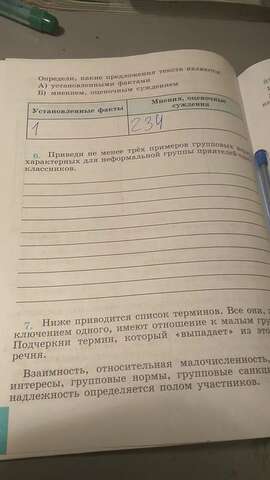 Определи, какие предложения текста являются
А) установленными фактами
Б) мнением, оценочным суждением
Установленные факты
Мнения, оценочные
суждения
1
234
6. Приведи не менее трёх примеров групповых
характерных для неформальной группы приятелей
классников.
7. Ниже приводится список терминов. Все они,
ключением одного, имеют отношение к малым
Подчеркни термин, который «выпадает» из
речня.
Взаимность, относительная малочисленность,
интересы, групповые нормы, групповые
надлежность определяется полом участников.